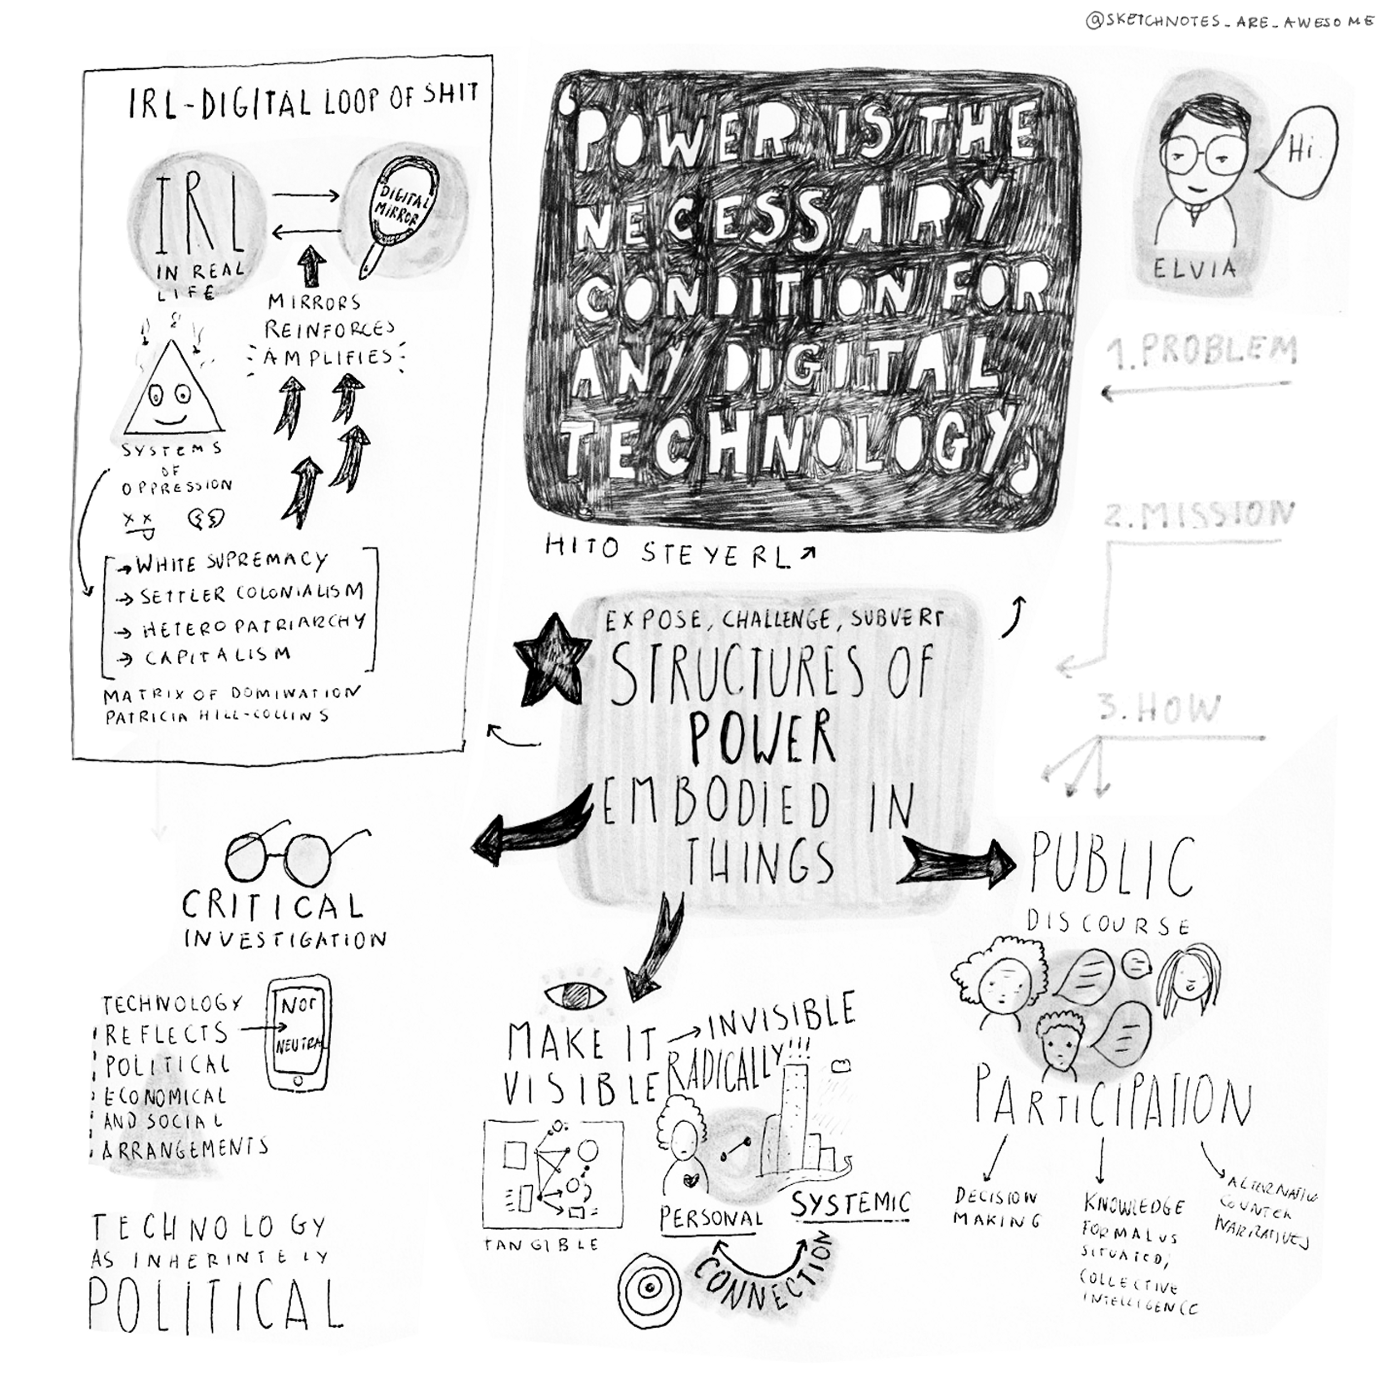 @SKETCHNOTES_ARE_AWESOME
IRL-DIGITAL LOOP OF SHIT
IRL
IN REAL
LIFE
DIGITAL
MIRROR
MIRRORS
REINFORCES
AMPLIFIES
SYSTEMS
OF
OPPRESSION
→ WHITE SUPREMACY
→ SETTLER COLONIALISM
→ HETEROPATRIARCHY
→ CAPITALISM
MATRIX OF DOMINATION
PATRICIA HILL-COLLINS
'POWER IS THE
NECESSARY
CONDITION FOR
ANY DIGITAL
TECHNOLOGY'
HITO STEYERL
Hi.
ELVIA
1. PROBLEM
2. MISSION
3. HOW
EXPOSE, CHALLENGE, SUBVERT
STRUCTURES OF
POWER
EMBODIED IN
THINGS
CRITICAL
INVESTIGATION
TECHNOLOGY
REFLECTS
POLITICAL
ECONOMICAL
AND SOCIAL
ARRANGEMENTS
NOT
NEUTRAL
TECHNOLOGY
AS INHERINTELY
POLITICAL
MAKE IT
VISIBLE
→ INVISIBLE
RADICALLY!!!
TANGIBLE
PERSONAL
SYSTEMIC
CONNECTION
PUBLIC
DISCOURSE
PARTICIPATION
DECISION
MAKING
KNOWLEDGE
SITUATED,
COLLECTIVE
INTELLIGENCE
COUNTER